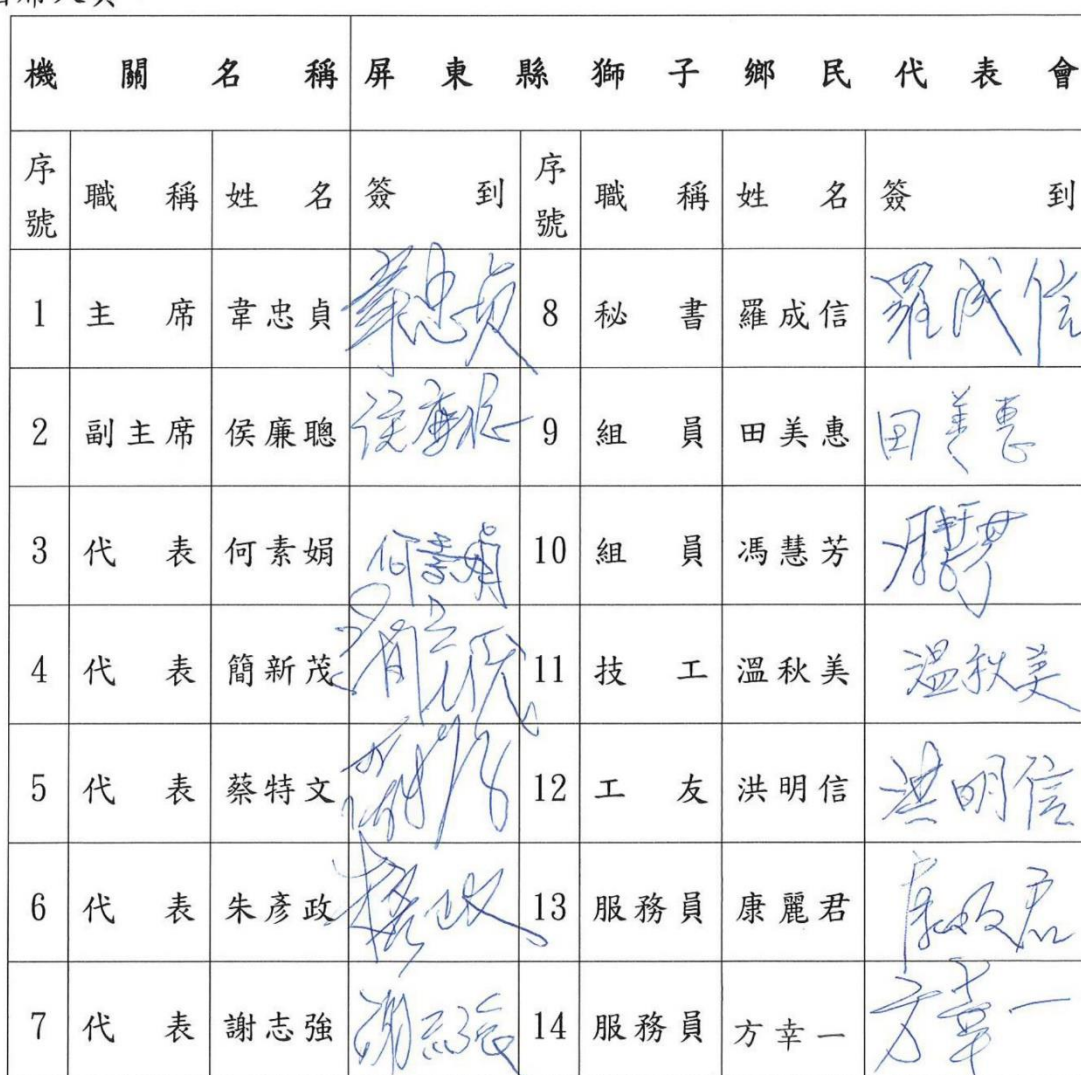 機關名稱 屏東縣獅子鄉民代表會
序號 職稱 姓名 簽到 序號 職稱 姓名 簽到
1 主席 韋忠貞 韋忠貞 8 秘書 羅成信 羅成信
2 副主席 侯廉聰 侯廉聰 9 組員 田美惠 田美惠
3 代表 何素娟 何素娟 10 組員 馮慧芳
4 代表 簡新茂 11 技工 溫秋美 溫秋美
5 代表 蔡特文 12 工友 洪明信 洪明信
6 代表 朱彥政 13 服務員 康麗君
7 代表 謝志強 謝志強 14 服務員 方幸一 方幸一